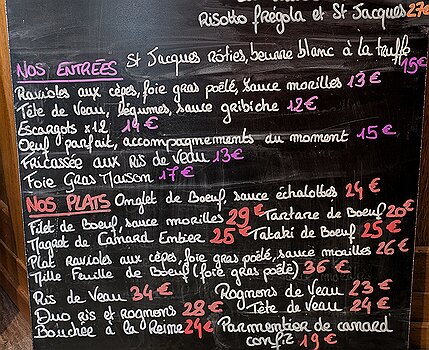 Risotto frégola et St Jacques 27€
NOS ENTRÉES St Jacques rôties, beurre blanc à la truffe 19€
Ravioles aux cèpes, foie gras poêlé, sauce morilles 13€
Tête de Veau, légumes, sauce gribiche 12€
Escargots x12 14€
Oeuf parfait, accompagnements du moment 15€
Fricassée aux Ris de Veau 13€
Foie Gras Maison 17€
NOS PLATS Onglet de Boeuf, sauce échalottes 24€
Filet de Boeuf, sauce morilles 29€ Tartare de Boeuf 20€
Magret de Canard Entier 25€ Tataki de Boeuf 25€
Plat ravioles aux cèpes, foie gras poêlé, sauce morilles 26€
Mille Feuille de Boeuf (foie gras poêlé) 36€
Ris de Veau 34€ Rognons de Veau 23€
Duo Ris et rognons 28€ Tête de Veau 24€
Bouchée à la Reine 24€ Parmentier de canard
confit 19€